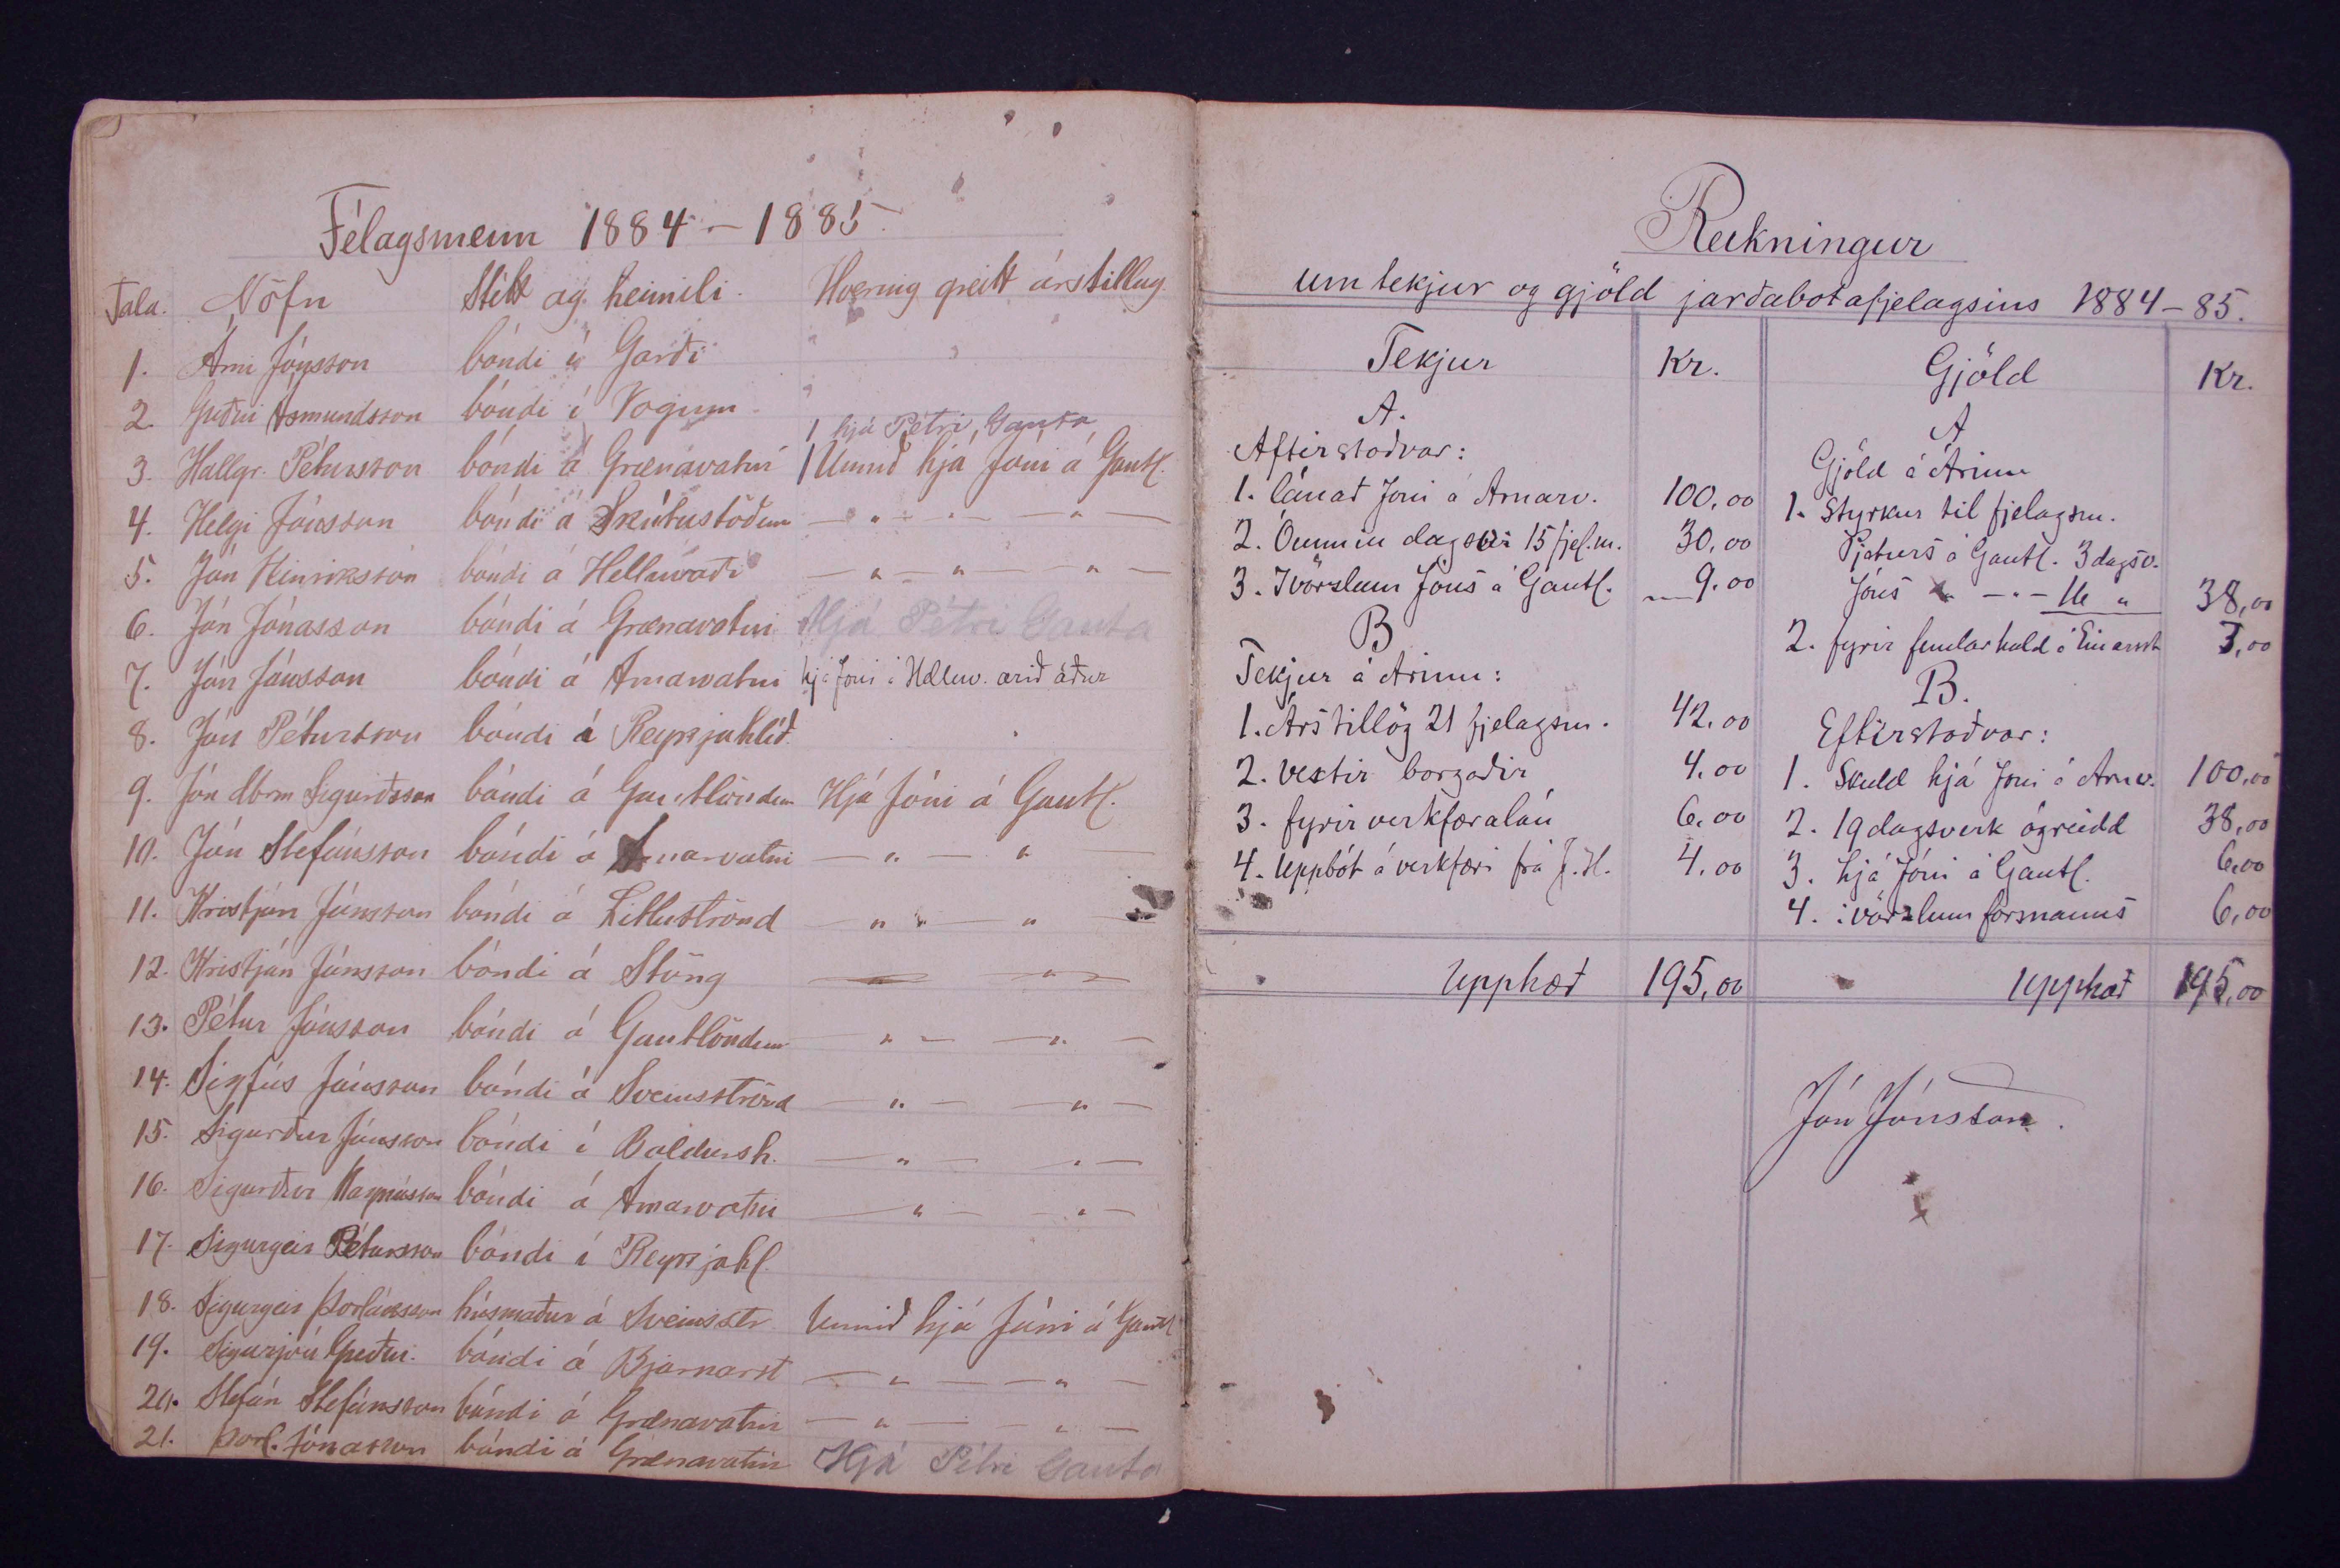 Félagsmenn 1884 – 1885.
Tala. Nöfn Stétt og heimili. Hvernig greitt árstillag
1. Árni Jónsson bóndi í Garði
2. Guðni Ásmundsson bóndi í Vogum
1 hjá Pétri, Gautl.
3. Hallgr. Pétursson bóndi á Grænavatni 1 Unnið hjá Jóni á Gautl.
4. Helgi Jónsson bóndi á Skútustöðum — „ — „ — „ —
5. Jón Hinriksson bóndi á Helluvaði — „ — „ — „ —
6. Jón Jónasson bóndi á Grænavatni Hjá Pétri Gauta
7. Jón Jónsson bóndi á Arnarvatni hjá Jóni á Helluv. árið áður
8. Jón Pétursson bóndi á Reykjahlíð.
9. Jón dbrm Sigurðsson bóndi á Gautlöndum Hjá Jóni á Gautl.
10. Jón Stefánsson bóndi á Arnarvatni — „ — „ —
11. Kristján Jónsson bóndi á Litluströnd — „ — „ —
12. Kristján Jónsson bóndi á Stöng — „ —
13. Pétur Jónsson bóndi á Gautlöndum — „ — — „ —
14. Sigfús Jónsson bóndi á Sveinsströnd — „ — — „ —
15. Sigurður Jónsson bóndi í Baldursh. — „ — „ —
16. Sigurður Magnússon bóndi á Arnarvatni — „ — — „ —
17. Sigurgeir Pétursson bóndi í Reykjahl.
18. Sigurgeir Þorláksson húsmaður á Sveinsstr. Unnið hjá Jóni á Gautl
19. Sigurjón Guðm. bóndi á Bjarnarst — „ — — „ —
20. Stefán Stefánsson bóndi á Grænavatni — „ — — „ —
21. Þorl. Jónasson bóndi á Grænavatni Hjá Pétri Gauta
Reikningur
um tekjur og gjöld jarðabótafjelagsins 1884 – 85.
Tekjur Kr. Gjöld Kr.
A.
Aftirstoðvar:
1. lánað Jóni á Arnarv. 100,00
2. Óunnin dagsv: 15 fjel.m. 30,00
3. Í vörslum Jóns á Gautl. 9.00
B
Tekjur á Árinu:
1. Árstillög 21 fjelagsm. 42.00
2. vextir borgaðir 4.00
3. fyrir verkfæralán 6,00
4. Uppbót á verkfæri frá J. H. 4,00
Upphæð 195,00
A
Gjöld á Árinu
1. Styrkur til fjelagsm.
Pjeturs á Gautl. 3 dagsv.
Jóns — „ — 16 „ 38,00
2. fyrir fundarhald á Einarsst 7,00
B.
Eftirstoðvar:
1. Skuld hjá Jóni á Arnv. 100,00
2. 19 dagsverk ógreidd 38,00
3. hjá Jóni á Gautl. 6,00
4. í vörslum formanns 6,00
Upphæð 195,00
Jón Jónsson.